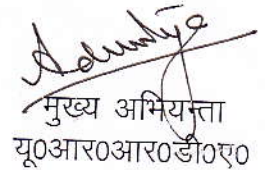 मुख्य अभियन्ता
यू0आर0आर0डी0ए0